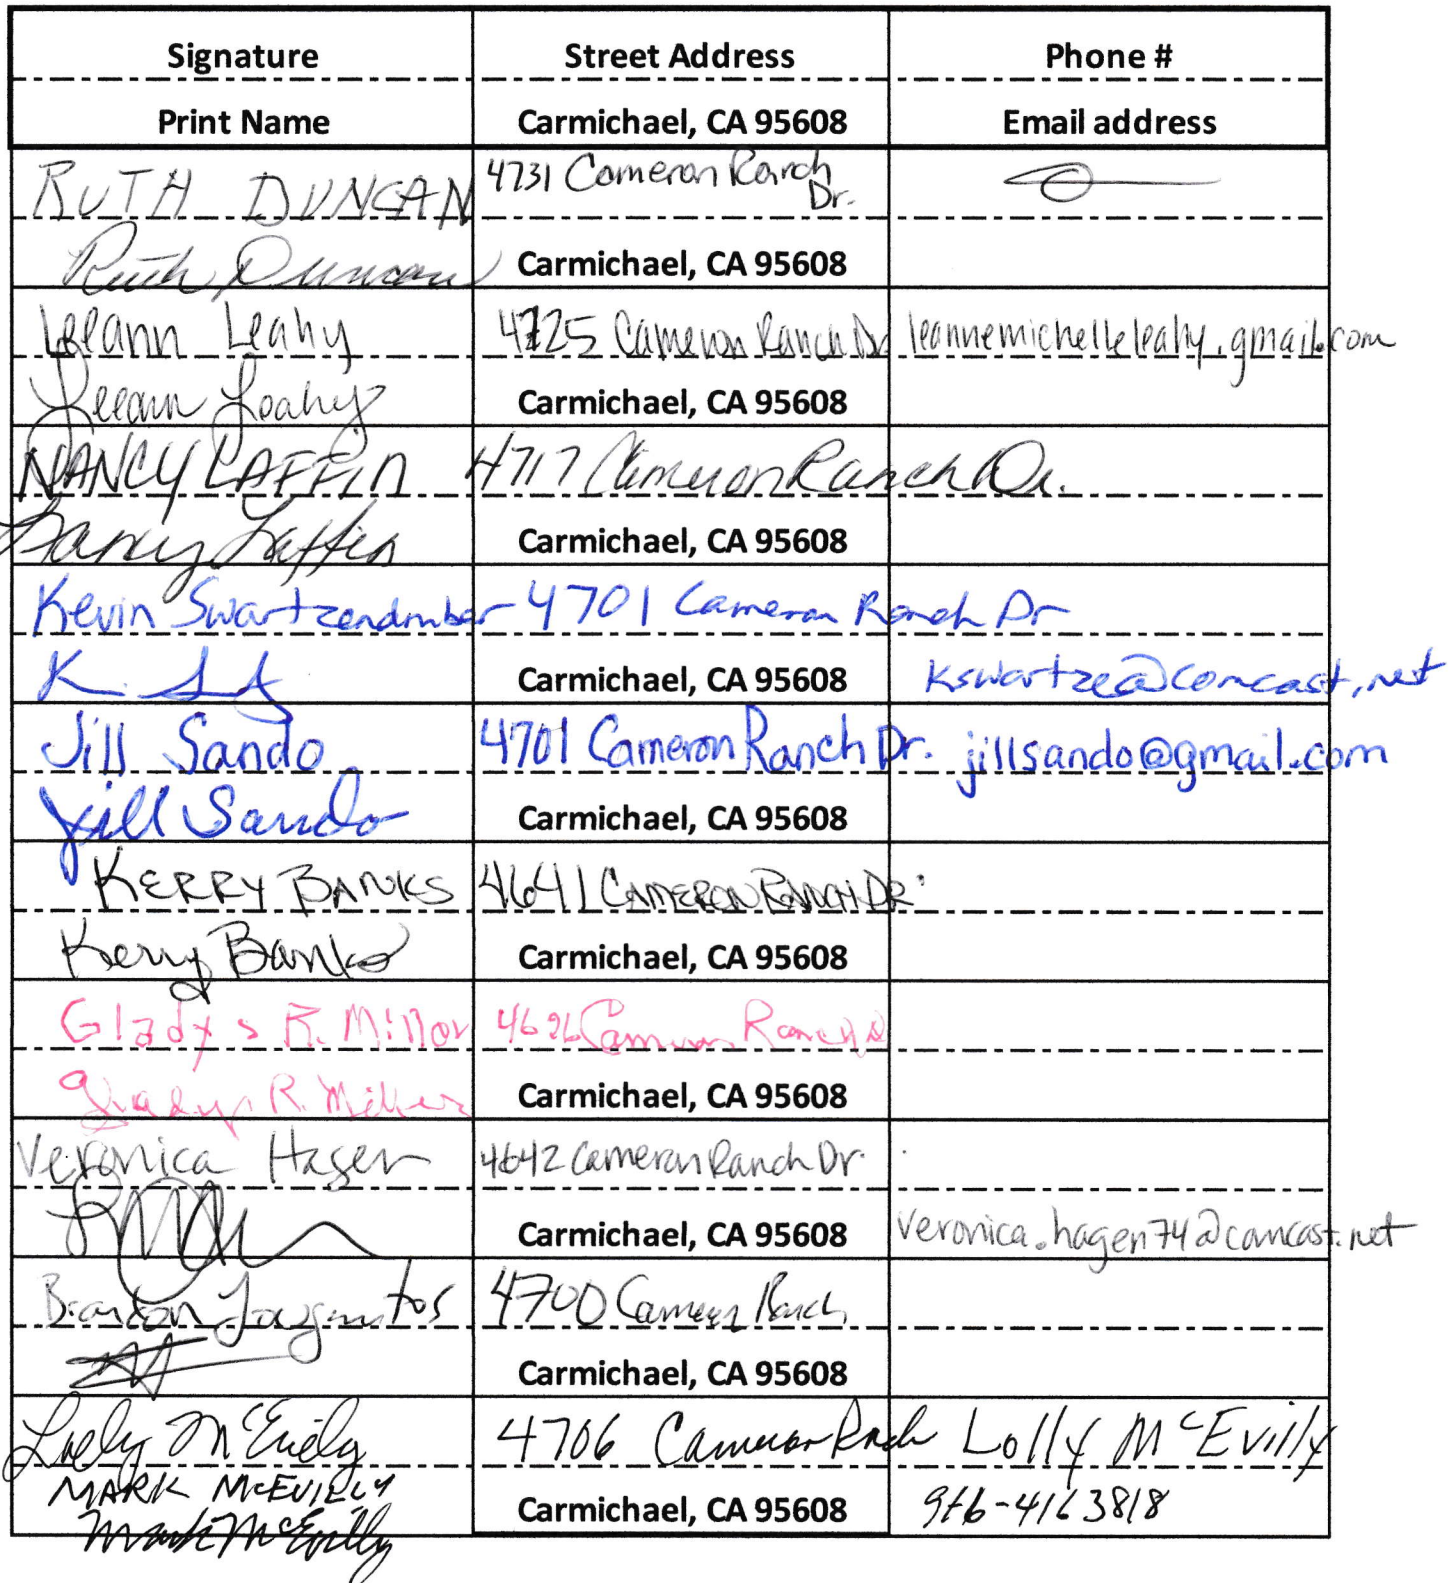 Signature Street Address Phone #
Print Name Carmichael, CA 95608 Email address
RUTH DUNCAN 4731 Cameron Ranch Dr.
Ruth Duncan Carmichael, CA 95608
Leeann Leahy 4725 Cameron Ranch Dr leannemichelleleahy.gmail.com
Leeann Leahy Carmichael, CA 95608
NANCY LAFFIN 4717 Cameron Ranch Dr.
Nancy Laffin Carmichael, CA 95608
Kevin Swartzendruber 4701 Cameron Ranch Dr
K. Carmichael, CA 95608 kswartze@comcast.net
Jill Sando 4701 Cameron Ranch Dr. jillsando@gmail.com
Jill Sando Carmichael, CA 95608
KERRY BANKS 4641 CAMERON RANCH DR.
Kerry Banks Carmichael, CA 95608
Gladys R. Miller 4626 Cameron Ranch D
Gladys R. Miller Carmichael, CA 95608
Veronica Hagen 4642 Cameron Ranch Dr.
Carmichael, CA 95608 veronica.hagen74@comcast.net
Brandon 4700 Cameron Ranch
Carmichael, CA 95608
Lolly McEvilly 4706 Cameron Ranch Lolly McEvilly
MARK McEVILLY Carmichael, CA 95608 916-4163818
Mark McEvilly